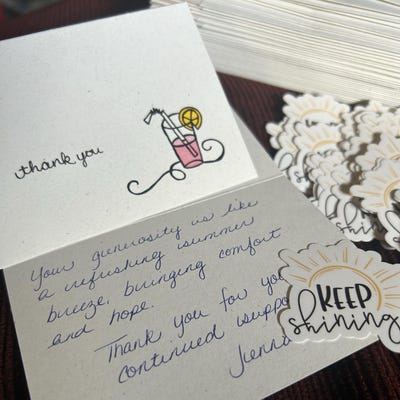 thank you
Your generosity is like
a refreshing summer
breeze, bringing comfort
and hope.
Thank you for
continued
KEEP
shining